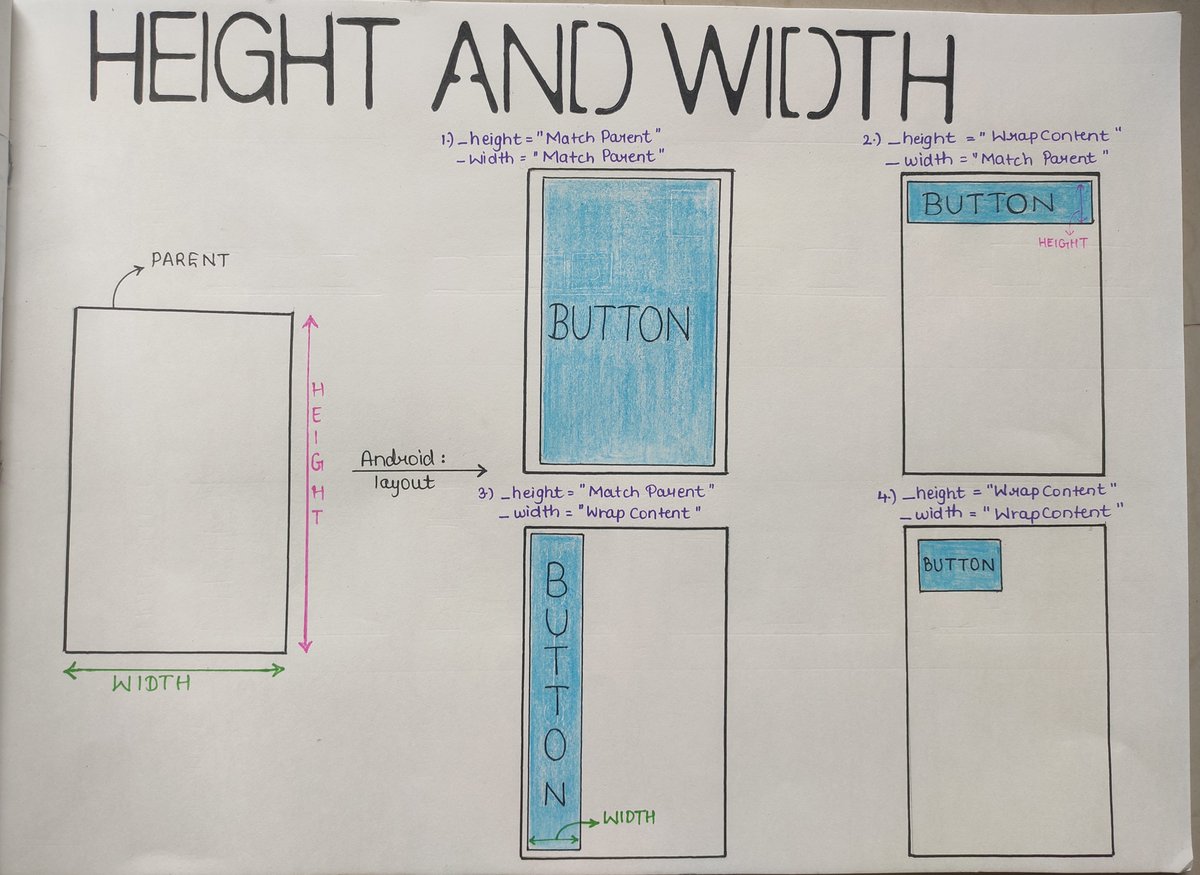 HEIGHT AND WIDTH
1.) _height = "Match Parent"
_width = "Match Parent"
BUTTON
2.) _height = "WrapContent"
_width = "Match Parent"
BUTTON
HEIGHT
PARENT
HEIGHT
WIDTH
Android:
layout
3.) _height = "Match Parent"
_width = "Wrap Content"
BUTTON
WIDTH
4.) _height = "WrapContent"
_width = "WrapContent"
BUTTON